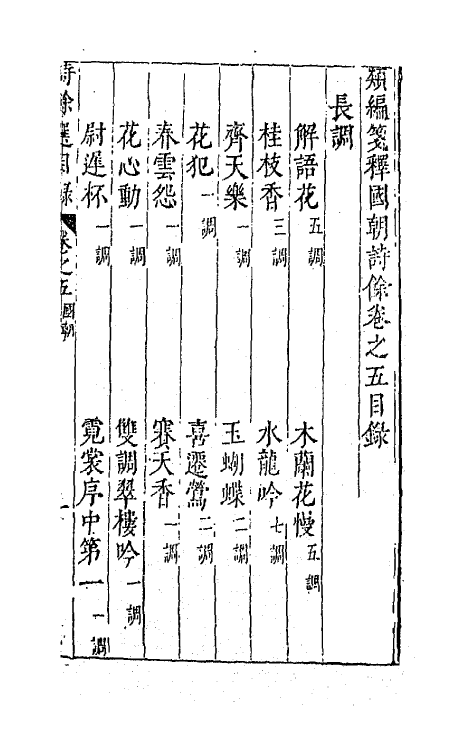 類編箋釋國朝詩餘卷之五目錄
長調
解語花 五調 木蘭花慢 五調
桂枝香 三調 水龍吟 七調
齊天樂 一調 玉蝴蝶 二調
花犯 一調 喜遷鶯 二調
春雲怨 一調 賽天香 一調
花心動 一調 雙調翠樓吟 一調
尉遲杯 一調 霓裳序中第一 一調
詩餘選目錄 卷之五 國朝 一